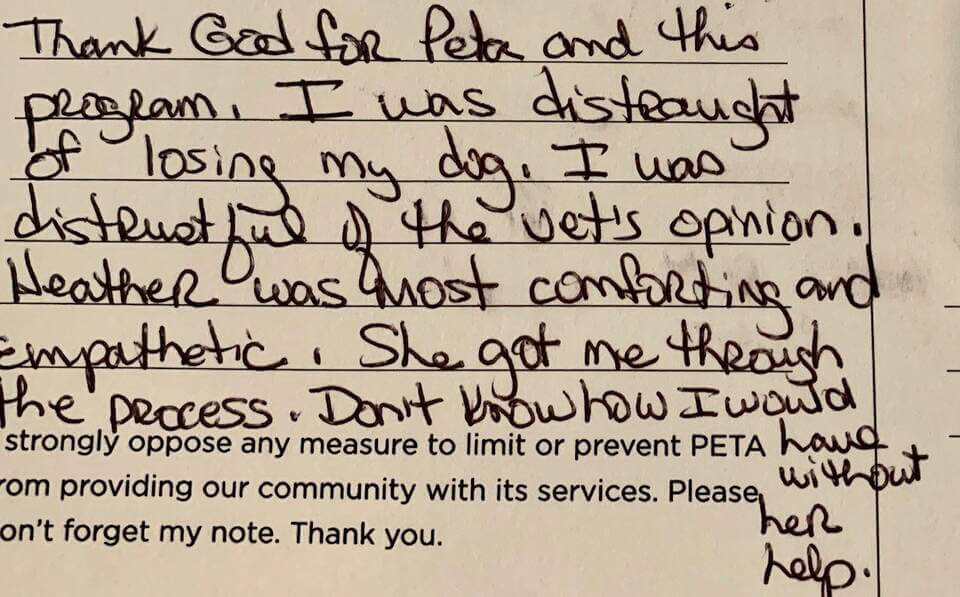 Thank God for Peta and this
program. I was distraught
of losing my dog. I was
distrustful of the vet's opinion.
Heather was most comforting and
empathetic. She got me through
the process. Don't know how I would
have
without
her
help.
strongly oppose any measure to limit or prevent PETA
rom providing our community with its services. Please,
on't forget my note. Thank you.